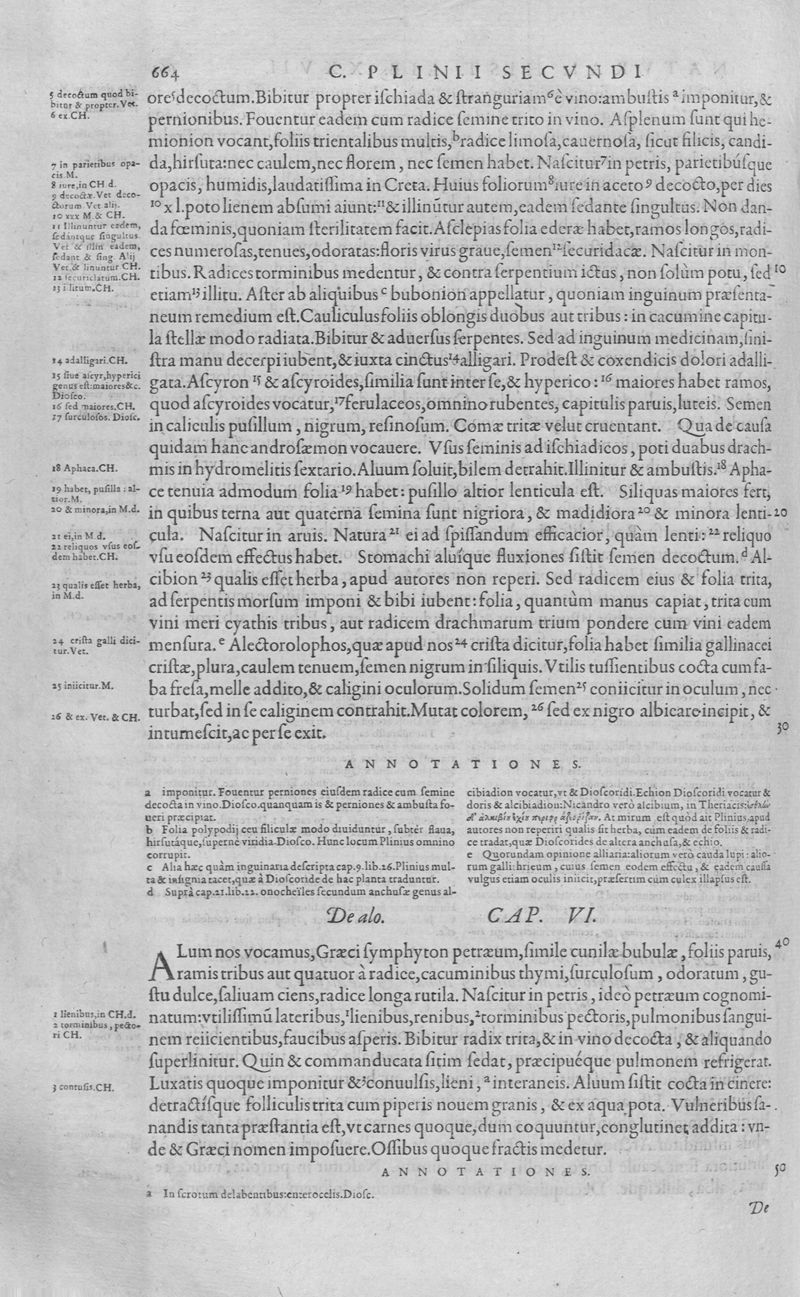 664 C. PLINII SECVNDI
5 decoctum quod bi-
bitur & propter. Vet.
6 ex. CH.
7 in parietibus opa-
cis. M.
8 iure, in CH. d.
9 decoctæ. Vet. deco-
ctorum Vet. alij.
10 xxx M. & CH.
11 Illinuntur eædem,
sedantque singultus.
Vet & illin eadem,
sedant & sing. Alij
Vet. & linuntur CH.
12 securiclatum. CH.
13 illitum. CH.
14 adalligari. CH.
15 siue ascyr, hyperici
genus est: maiores &c.
Diosco.
16 sed maiores. CH.
17 surculosos. Diosc.
18 Aphaca. CH.
19 habet, pusilla: al-
tior. M.
20 & minora, in M. d.
21 ei, in M d.
22 reliquos vsus eos-
dem habet. CH.
23 qualis esset herba,
in M. d.
24 crista galli dici-
tur. Vet.
25 iniicitur. M.
26 & ex. Vet. & CH.
oreˢdecoctum. Bibitur propter ischiada & stranguriam⁶è vino: ambustis ᵃ imponitur, &
pernionibus. Fouentur eadem cum radice semine trito in vino. Asplenum sunt qui he-
mionion vocant, foliis trientalibus multis, ᵇradice limosa, cauernosa, sicut filicis, candi-
da, hirsuta: nec caulem, nec florem, nec semen habet. Nascitur⁷in petris, parietibúsque
opacis, humidis, laudatissima in Creta. Huius foliorum⁸iure in aceto ⁹ decocto, per dies
¹⁰ xl. poto lienem absumi aiunt: ¹¹& illinūtur autem, eadem sedante singultus. Non dan-
da fœminis, quoniam sterilitatem facit. Asclepias folia ederæ habet, ramos longos, radi-
ces numerosas, tenues, odoratas: floris virus graue, semen¹²securidacæ. Nascitur in mon-
tibus. Radices torminibus medentur, & contra serpentium ictus, non solùm potu, sed 10
etiam¹³illitu. Aster ab aliquibus ᶜ bubonion appellatur, quoniam inguinum præsenta-
neum remedium est. Cauliculus foliis oblongis duobus aut tribus: in cacumine capitu-
la stellæ modo radiata. Bibitur & aduersus serpentes. Sed ad inguinum medicinam, sini-
stra manu decerpi iubent, & iuxta cinctus¹⁴alligari. Prodest & coxendicis dolori adalli-
gata. Ascyron ¹⁵ & ascyroides, similia sunt inter se, & hyperico: ¹⁶ maiores habet ramos,
quod ascyroides vocatur, ¹⁷ferulaceos, omnino rubentes, capitulis paruis, luteis. Semen
in caliculis pusillum, nigrum, resinosum. Comæ tritæ velut cruentant. Qua de causa
quidam hanc androsæmon vocauere. Vsus seminis ad ischiadicos, poti duabus drach-
mis in hydromelitis sextario. Aluum soluit, bilem detrahit. Illinitur & ambustis. ¹⁸ Apha-
ce tenuia admodum folia ¹⁹ habet: pusillo altior lenticula est. Siliquas maiores fert,
in quibus terna aut quaterna semina sunt nigriora, & madidiora ²⁰ & minora lenti- 20
cula. Nascitur in aruis. Natura ²¹ ei ad spissandum efficacior, quàm lenti: ²² reliquo
vsu eosdem effectus habet. Stomachi aluíque fluxiones sistit semen decoctum. ᵈ Al-
cibion ²³ qualis esset herba, apud autores non reperi. Sed radicem eius & folia trita,
ad serpentis morsum imponi & bibi iubent: folia, quantùm manus capiat, trita cum
vini meri cyathis tribus, aut radicem drachmarum trium pondere cum vini eadem
mensura. ᵉ Alectorolophos, quæ apud nos ²⁴ crista dicitur, folia habet similia gallinacei
cristæ, plura, caulem tenuem, semen nigrum in siliquis. Vtilis tussientibus cocta cum fa-
ba fresa, melle addito, & caligini oculorum. Solidum semen²⁵ coniicitur in oculum, nec
turbat, sed in se caliginem contrahit. Mutat colorem, ²⁶ sed ex nigro albicare incipit, &
intumescit, ac per se exit. 30
ANNOTATIONES.
a imponitur. Fouentur perniones eiusdem radice cum semine
decocta in vino. Diosco. quanquam is & perniones & ambusta fo-
ueri præcipiat.
b Folia polypodij ceu filiculæ modo diuiduntur, subtèr flaua,
hirsutáque, supernè viridia. Diosco. Hunc locum Plinius omnino
corrupit.
c Alia hæc quàm inguinaria descripta cap. 9. lib. 26. Plinius mul-
ta & insignia tacet, quæ à Dioscoride de hac planta traduntur.
d Suprà cap. 21. lib. 22. onocheiles secundum anchusæ genus al-
cibiadion vocatur, vt & Dioscoridi. Echion Dioscoridi vocatur &
doris & alcibiadion: Nicandro verò alcibium, in Theriacis:
At mirum est quòd ait Plinius, apud
autores non reperiri qualis sit herba, cùm eædem de foliis & radi-
ce tradat, quæ Dioscorides de altera anchusa, & echio.
e Quorundam opinione alliaria: aliorum verò cauda lupi: alio-
rum galli: hrieum, cuius semen eodem effectu, & eadem caussa
vulgus etiam oculis iniicit, præsertim cùm culex illapsus est.
De alo. CAP. VI.
1 lienibus, in CH. d.
2 torminibus, pecto-
ri CH.
3 contusis. CH.
ALum nos vocamus, Græci symphyton petræum, simile cunilæ bubulæ, foliis paruis, 40
ramis tribus aut quatuor à radice, cacuminibus thymi, surculosum, odoratum, gu-
stu dulce, saliuam ciens, radice longa rutila. Nascitur in petris, ideò petræum cognomi-
natum: vtilissimū lateribus, ¹lienibus, renibus, ²torminibus pectoris, pulmonibus sangui-
nem reiicientibus, faucibus asperis. Bibitur radix trita, & in vino decocta, & aliquando
superlinitur. Quin & commanducata sitim sedat, præcipuéque pulmonem refrigerat.
Luxatis quoque imponitur &³conuulsis, lieni, ᵃ interaneis. Aluum sistit cocta in cinere:
detractísque folliculis trita cum piperis nouem granis, & ex aqua pota. Vulneribus sa-
nandis tanta præstantia est, vt carnes quoque, dum coquuntur, conglutinet addita: vn-
de & Græci nomen imposuere. Ossibus quoque fractis medetur.
ANNOTATIONES. 50
a In scrotum delabentibus: enterocelis. Diosc.
De